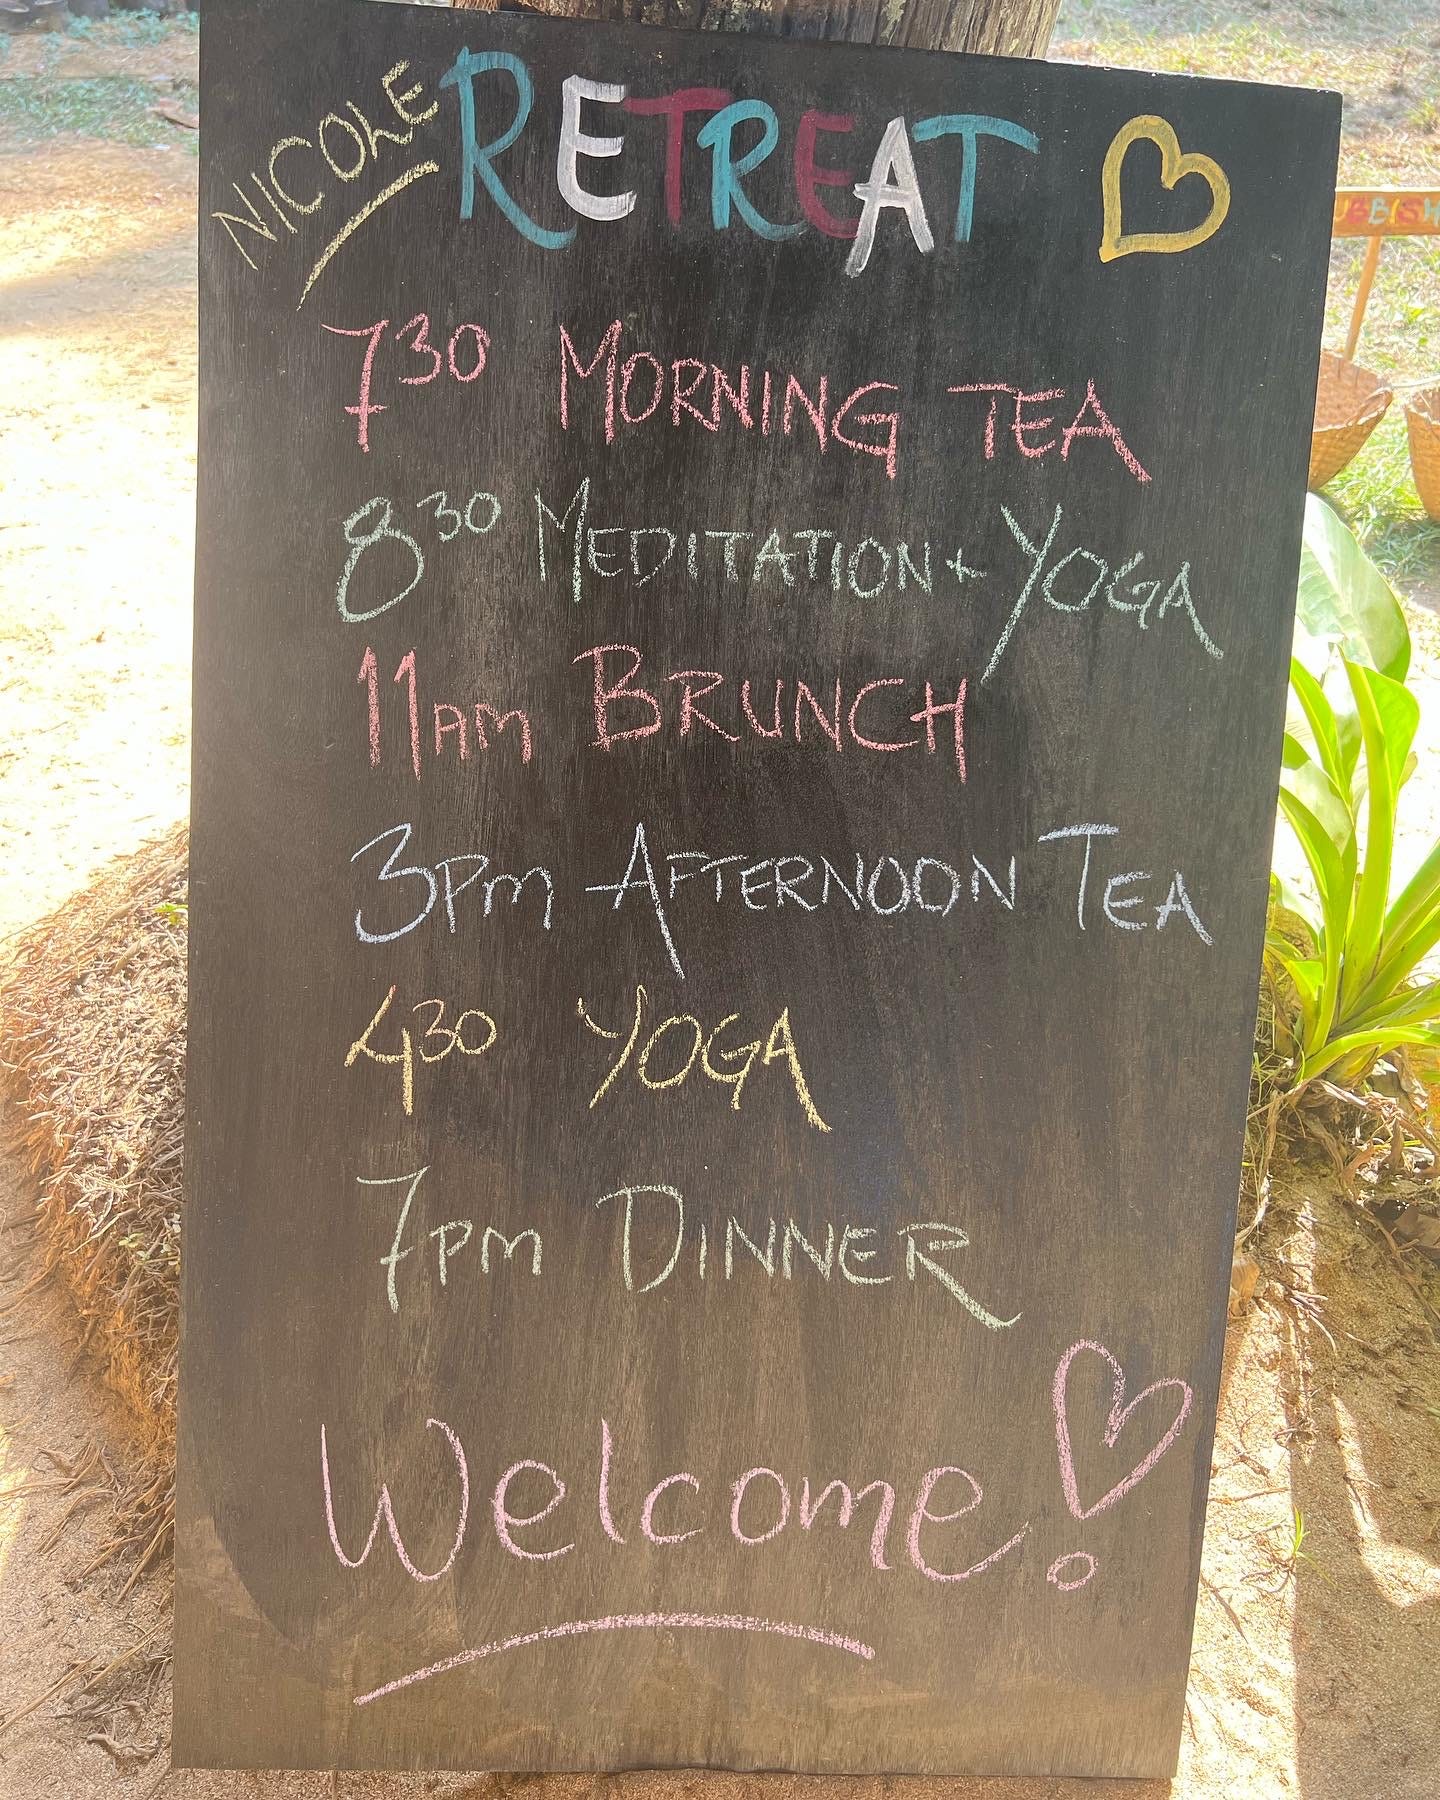 NICOLE RETREAT
7 30 MORNING TEA
8 30 MEDITATION + YOGA
11 AM BRUNCH
3PM AFTERNOON TEA
4 30 YOGA
7PM DINNER
Welcome!